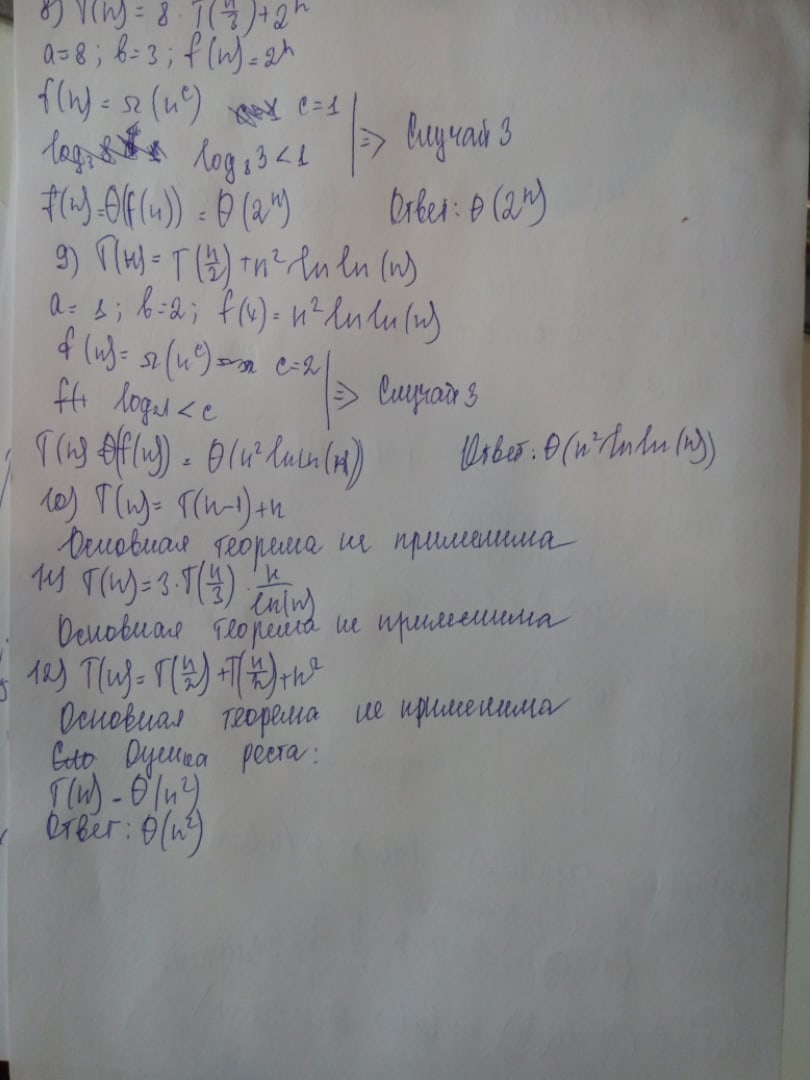 8) T(n) = 8 · T(n/3) + 2^n
a=8; b=3; f(n)=2^n
f(n) = Ω(n^c) c=1
log_8 3 < 1 => Случай 3
f(n)=Θ(f(n)) = Θ(2^n) Ответ: Θ(2^n)
9) T(n) = T(n/2) + n² ln ln(n)
a = 1; b=2; f(n) = n² ln ln(n)
f(n) = Ω(n^c) c=2
log_2 1 < c => Случай 3
T(n) = Θ(f(n)) = Θ(n² ln ln(n)) Ответ: Θ(n² ln ln(n))
10) T(n) = T(n-1)+n
Основная теорема не применима
11) T(n) = 3·T(n/3) · n/ln(n)
Основная теорема не применима
12) T(n) = T(n/2) + T(n/2) + n²
Основная теорема не применима
Оценка роста:
T(n) - Θ(n²)
Ответ: Θ(n²)